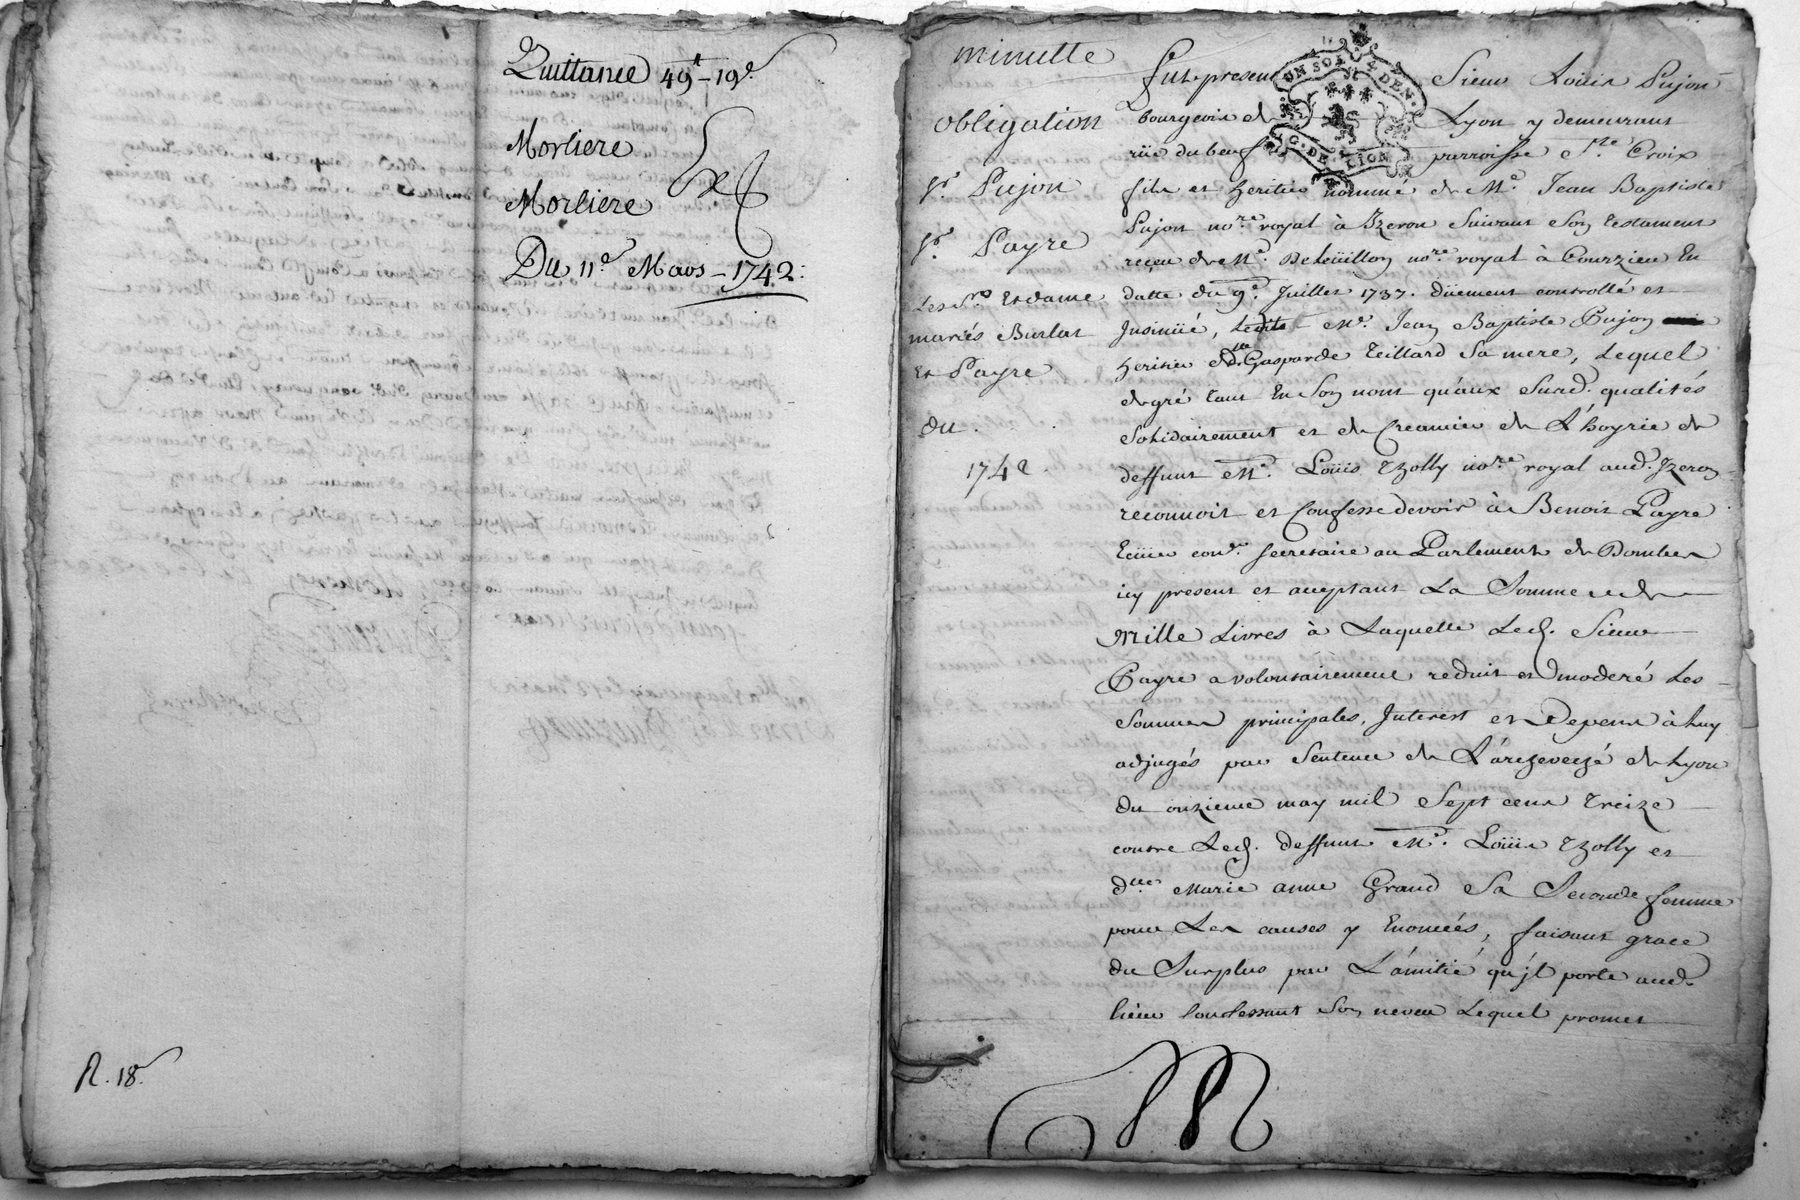 Quittance 49ᵗ-19ˢ
Morliere
Morliere
Du 11ᵉ Mars - 1742:
R. 18ˢ
minutte
obligation
Sʳ. Pujon
Sʳ. Payre
Les Sʳˢ et dame
mariés Burlat
Et Payre
du.
1742.
UN SOL 4 DEN.
G. DE LION
Fut present Sieur Loüis Pujon
bourgeois de Lyon y demeurant
rüe du beuf parroisse Sᵗᵉ Croix
fils et heritier nommé de Mᵉ. Jean Baptiste
Pujon noʳᵉ royal à Jzeron suivant son testament
reçeu de Mᵉ. noʳᵉ royal à Courzieu En
datte du 9ᵉ. Juillet 1737. düement controllé et
Jnsinüé, Ledit Mᵉ. Jean Baptiste Pujon
heritier de dˡˡᵉ Gasparde Teillard sa mere, Lequel
de gré tant En son nom qu'aux susd. qualités
solidairement et de Creancier de L'hoyrie de
deffunt Mᵉ. Loüis Tholly noʳᵉ royal aud. Jzeron
reconnoit et Confesse devoir à Benoit Payre
Ecüier conᵉʳ. secretaire au Parlement de Dombes
icy present et acceptant La Somme de
Mille Livres à Laquelle Led. Sieur
Payre a volontairement reduit et moderé Les
Sommes principales, Jnterest et Depens à luy
adjugés par Sentence de L'archeveché de Lyon
du onzieme may mil Sept cens treize
contre Led. deffunt Mᵉ. Loüis Tholly et
dˡˡᵉ Marie anne Grand Sa Seconde femme
pour Les causes y Enoncées, faisant grace
du Surplus par L'amitié qu'jl porte aud.
Sieur Confessant son neveu Lequel promet